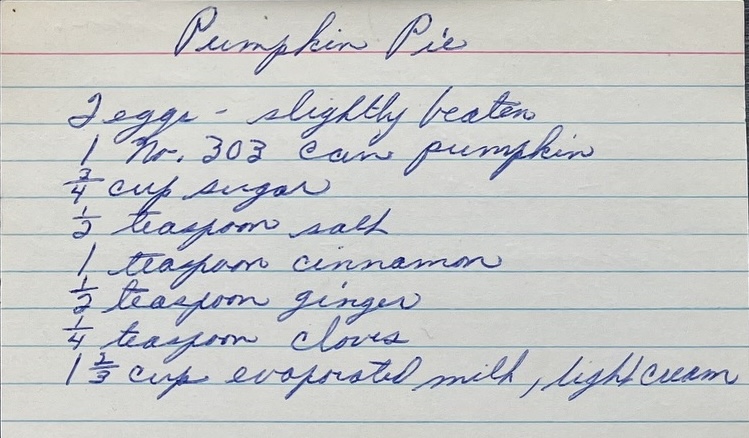 Pumpkin Pie
2 eggs - slightly beaten
1 No. 303 can pumpkin
3/4 cup sugar
1/2 teaspoon salt
1 teaspoon cinnamon
1/2 teaspoon ginger
1/4 teaspoon cloves
1 2/3 cup evaporated milk, light cream